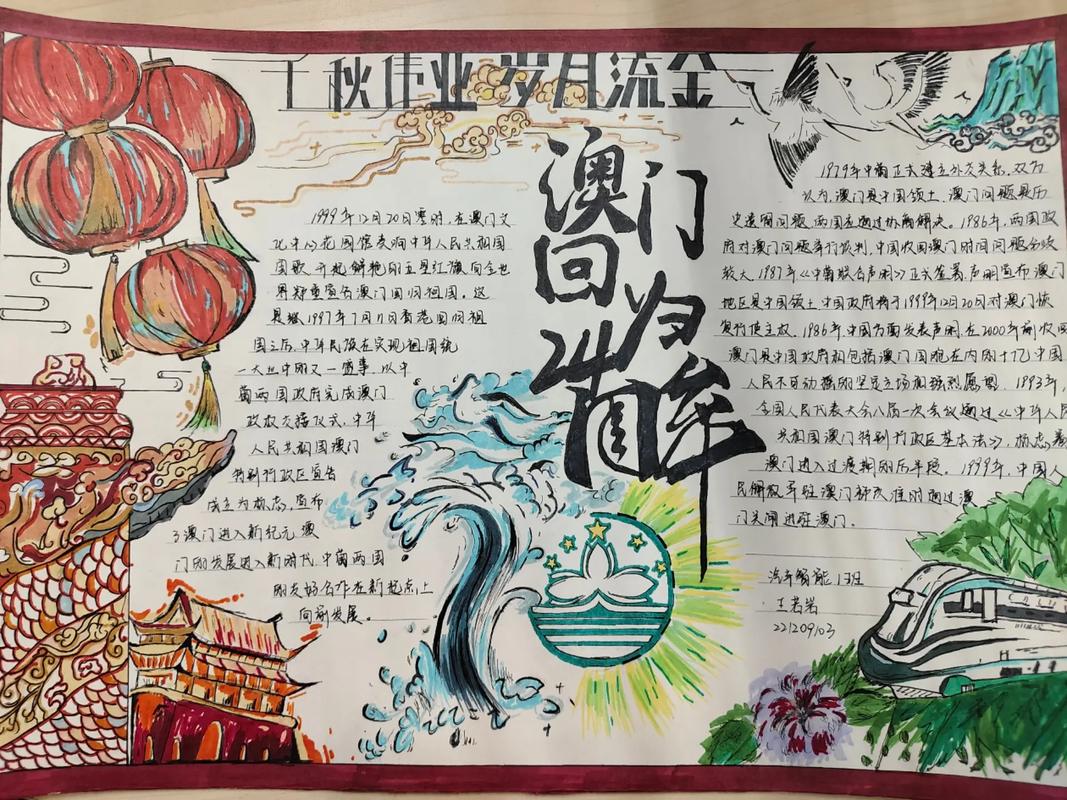 千秋伟业 岁月流金
澳门
回归
1999年12月20日零时,在澳门文
化中心花园馆奏响中华人民共和国
国歌 升起鲜艳的五星红旗向全世
界郑重宣告澳门回归祖国。这
是继1997年7月1日香港回归祖
国之后,中华民族在实现祖国统
一大业中的又一盛事,以中
葡两国政府完成澳门
政权交接仪式,中华
人民共和国澳门
特别行政区宣告
成立为标志,宣布
了澳门进入新纪元 澳
门的发展进入新时代 中葡两国
的友好合作在新起点上
向前发展。
1979年中葡正式建立外交关系,双方
认为,澳门是中国领土,澳门问题是历
史遗留问题,两国应通过协商解决。1986年,两国政
府对澳门问题举行谈判,中国收回澳门时间问题分歧
较大,1987年《中葡联合声明》正式签署,声明宣布澳门
地区是中国领土 中国政府将于1999年12月20日对澳门恢
复行使主权,1986年,中国方面发表声明,在2000年前收回
澳门是中国政府和包括澳门同胞在内的十亿中国
人民不可动摇的坚定立场和强烈愿望,1993年,
全国人民代表大会八届一次会议通过《中华人民
共和国澳门特别行政区基本法》,标志着
澳门进入过渡期的后半段。1999年,中国人
民解放军驻澳门部队准时通过澳
门关闸进驻澳门。
汽车智能1班
王若岩
22120903